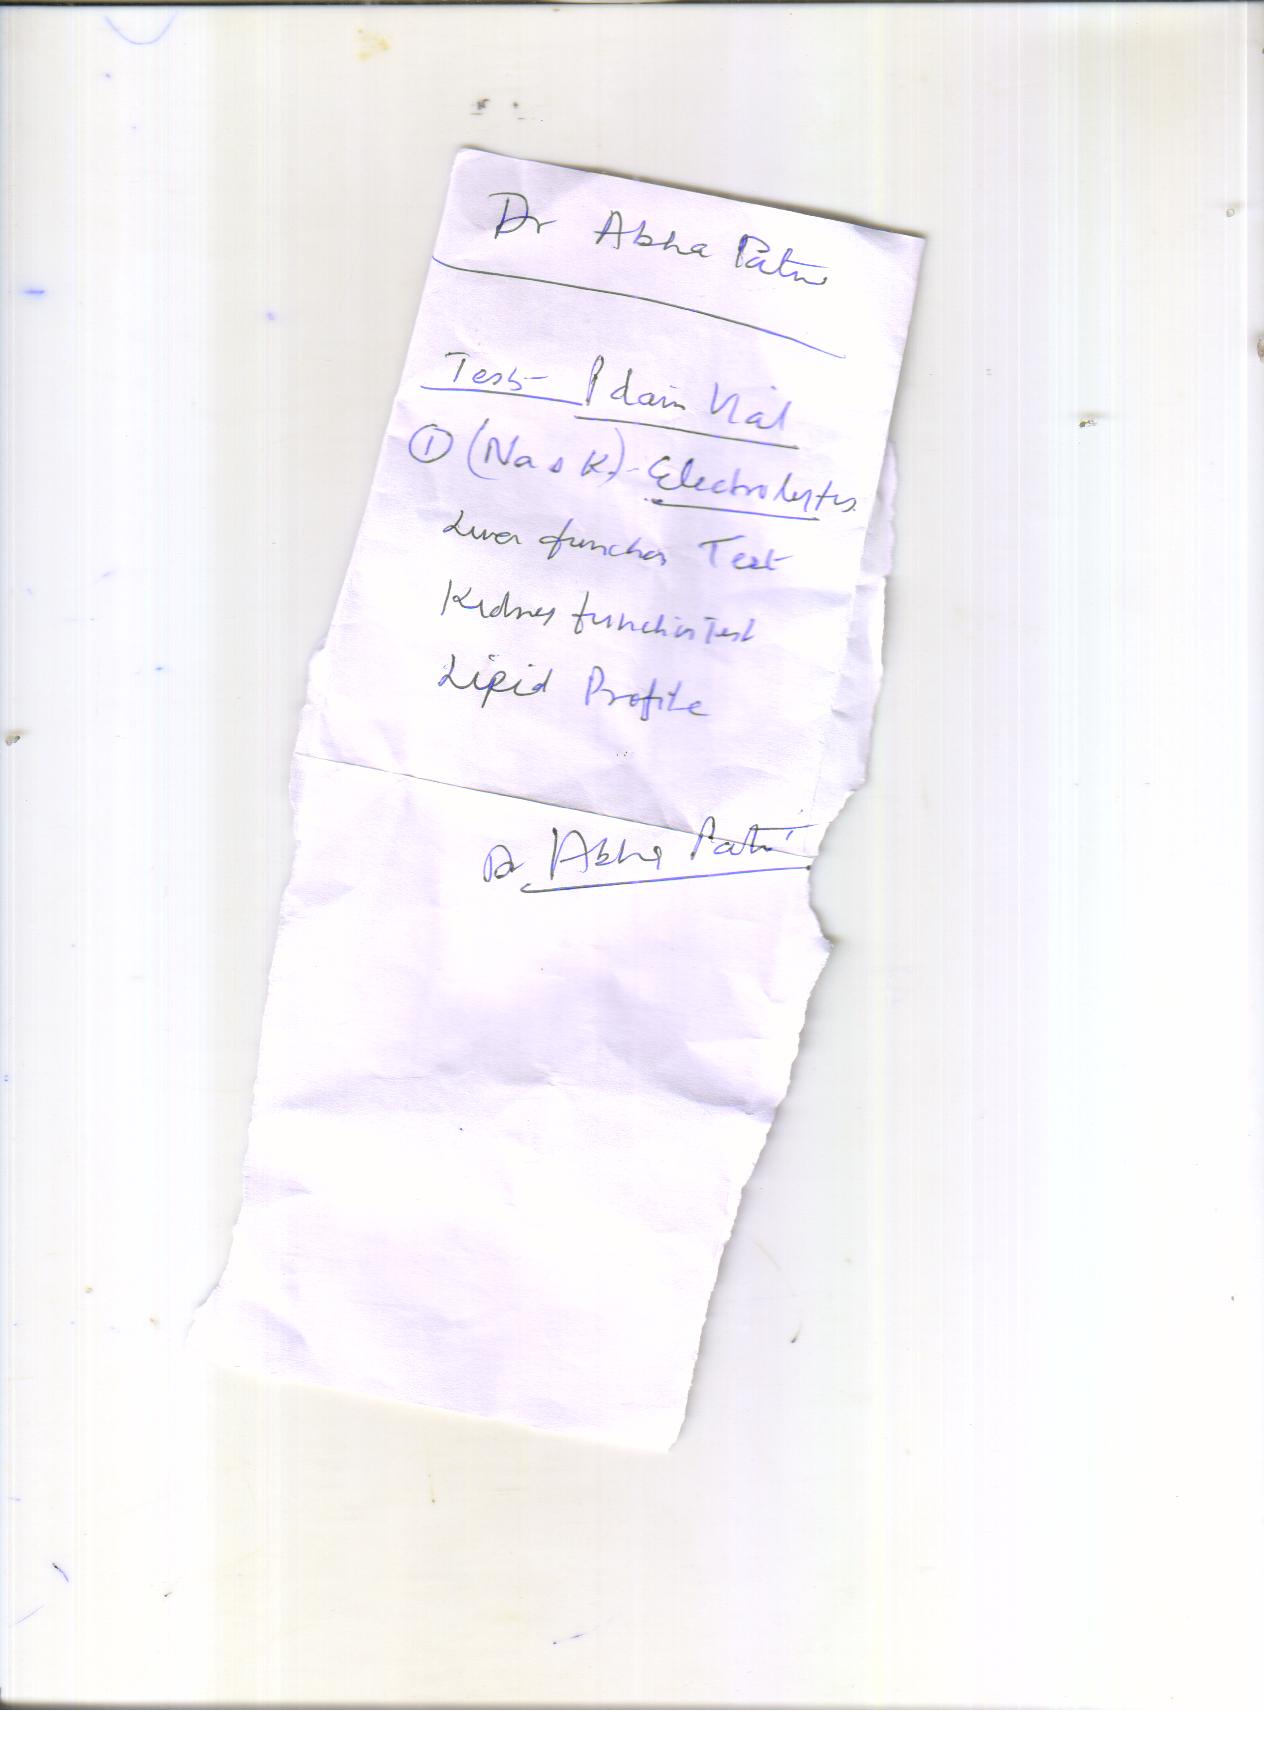 Dr Abha Patni
Test- Plain Vial
① (Na & K)- Electrolytes
Liver function Test
Kidney function Test
Lipid Profile
Dr Abha Patni